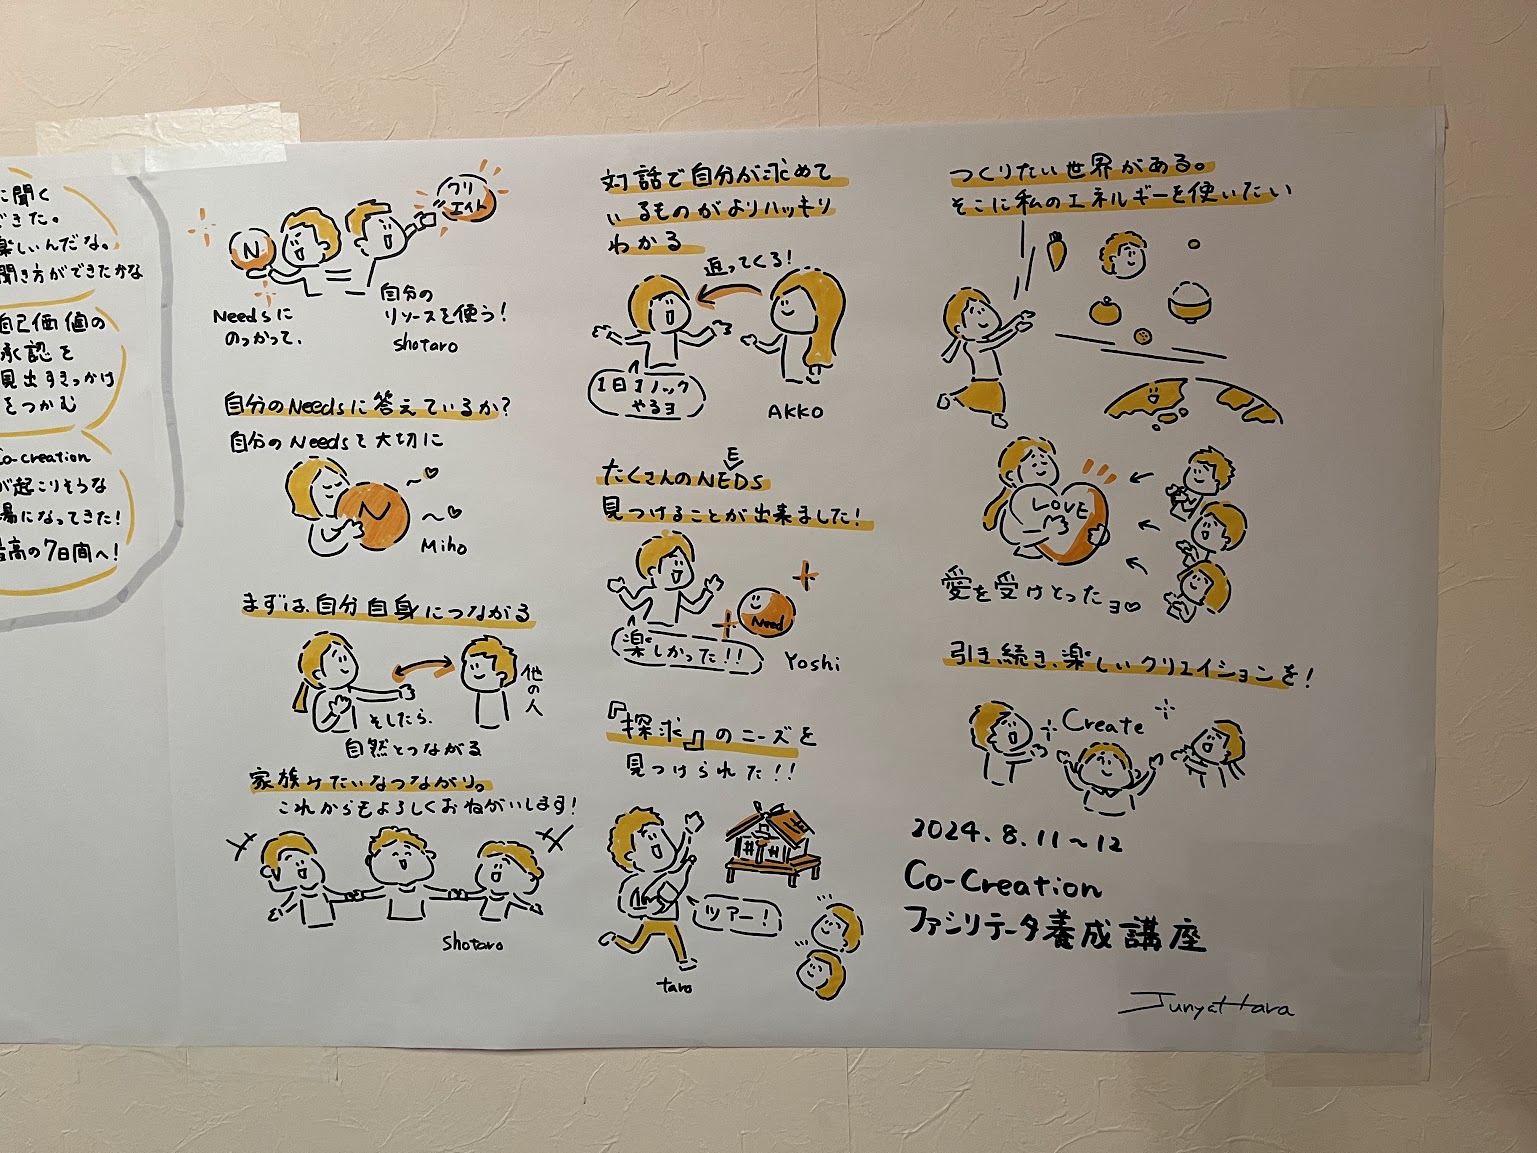 に聞く
できた。
楽しいんだな。
聞き方ができたかな
自己価値の
承認を
見出すきっかけ
をつかむ
Co-creation
が起こりそうな
場になってきた!
最高の7日間へ!
N
クリ
エイト
Needsに
のっかって、
自分の
リソースを使う!
Shotaro
自分のNeedsに答えているか?
自分のNeedsを大切に
N
Miho
まずは、自分自身につながる
他の人
そしたら、
自然とつながる
家族みたいなつながり。
これからもよろしくおねがいします!
Shotaro
対話で自分が求めて
いるものがよりハッキリ
わかる
返ってくる!
1日1ノック
やるヨ
AKKO
E
たくさんのNEDS
見つけることが出来ました!
Need
楽しかった!!
Yoshi
『探求』のニーズを
見つけられた!!
ツアー!
taro
つくりたい世界がある。
そこに私のエネルギーを使いたい
LOVE
愛を受けとったョ♡
引き続き、楽しいクリエイションを!
Create
2024.8.11~12
Co-Creation
ファシリテータ養成講座
JunyaHara